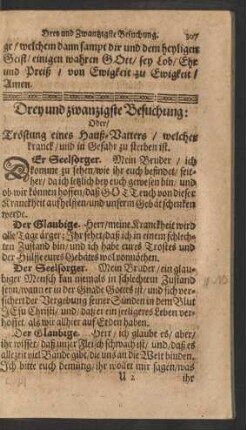 Drey und Zwantzigste Besuchung. 307
ge / welchem dann sampt dir und dem heyligen
Geist / einigen wahren GOtt / sey Lob / Ehr
und Preiß / von Ewigkeit zu Ewigkeit /
Amen.
Drey und zwanzigste Besuchung:
Oder /
Tröstung eines Hauß-Vatters / welcher
kranck / und in Gefahr zu sterben ist.
Der Seelsorger. Mein Bruder / ich
komme zu sehen / wie ihr euch befindet / seit-
her / da ich letzlich bey euch gewesen bin / und
ob wir können hoffen / daß GOTT euch von dieser
Kranckheit auffhelffen / und unserm Gebät schencken
werde.
Der Glaubige. Herr / meine Kranckheit wird
alle Tage ärger; Ihr sehet / daß ich in einem schlech-
ten Zustand bin / und ich habe eures Trostes und
der Hülffe eures Gebätes wol vonnöthen.
Der Seelsorger. Mein Bruder / ein glau-
biger Mensch kan niemals in schlechtem Zustand
seyn / wann er in der Gnade Gottes ist / und sich ver-
sichert der Vergebung seiner Sünden in dem Blut
JEsu Christi / und daß er ein seeligeres Leben ver-
hoffet / als wir allhier auf Erden haben.
Der Glaubige. Herr / ich glaube es / aber /
ihr wisset / daß unser Fleisch schwach ist / und daß es
allezeit viel Bande gibt / die uns an die Welt binden.
Ich bitte euch demütig / ihr wollet mir sagen / was
U 2 ihr